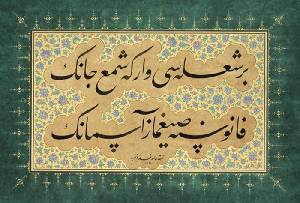 بر شعله‌سی وار که شمع جانک
فانوسنه صیغماز آسمانک